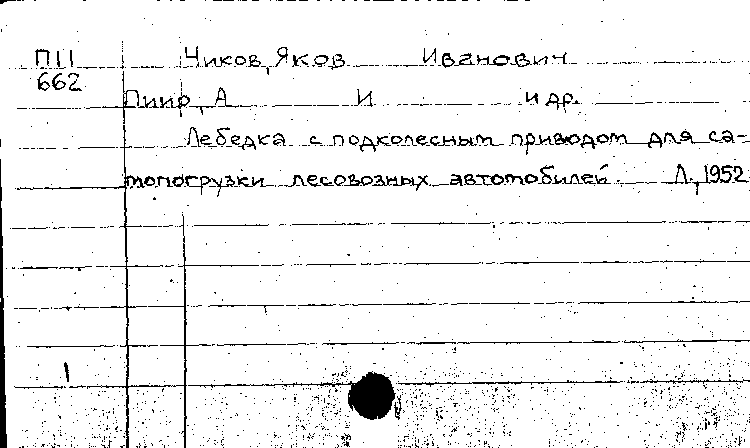 П11 Чиков, Яков Иванович
662
Пиир, А И и др.
Лебедка с подколесным приводом для са-
мопогрузки лесовозных автомобилей. Л., 1952
1